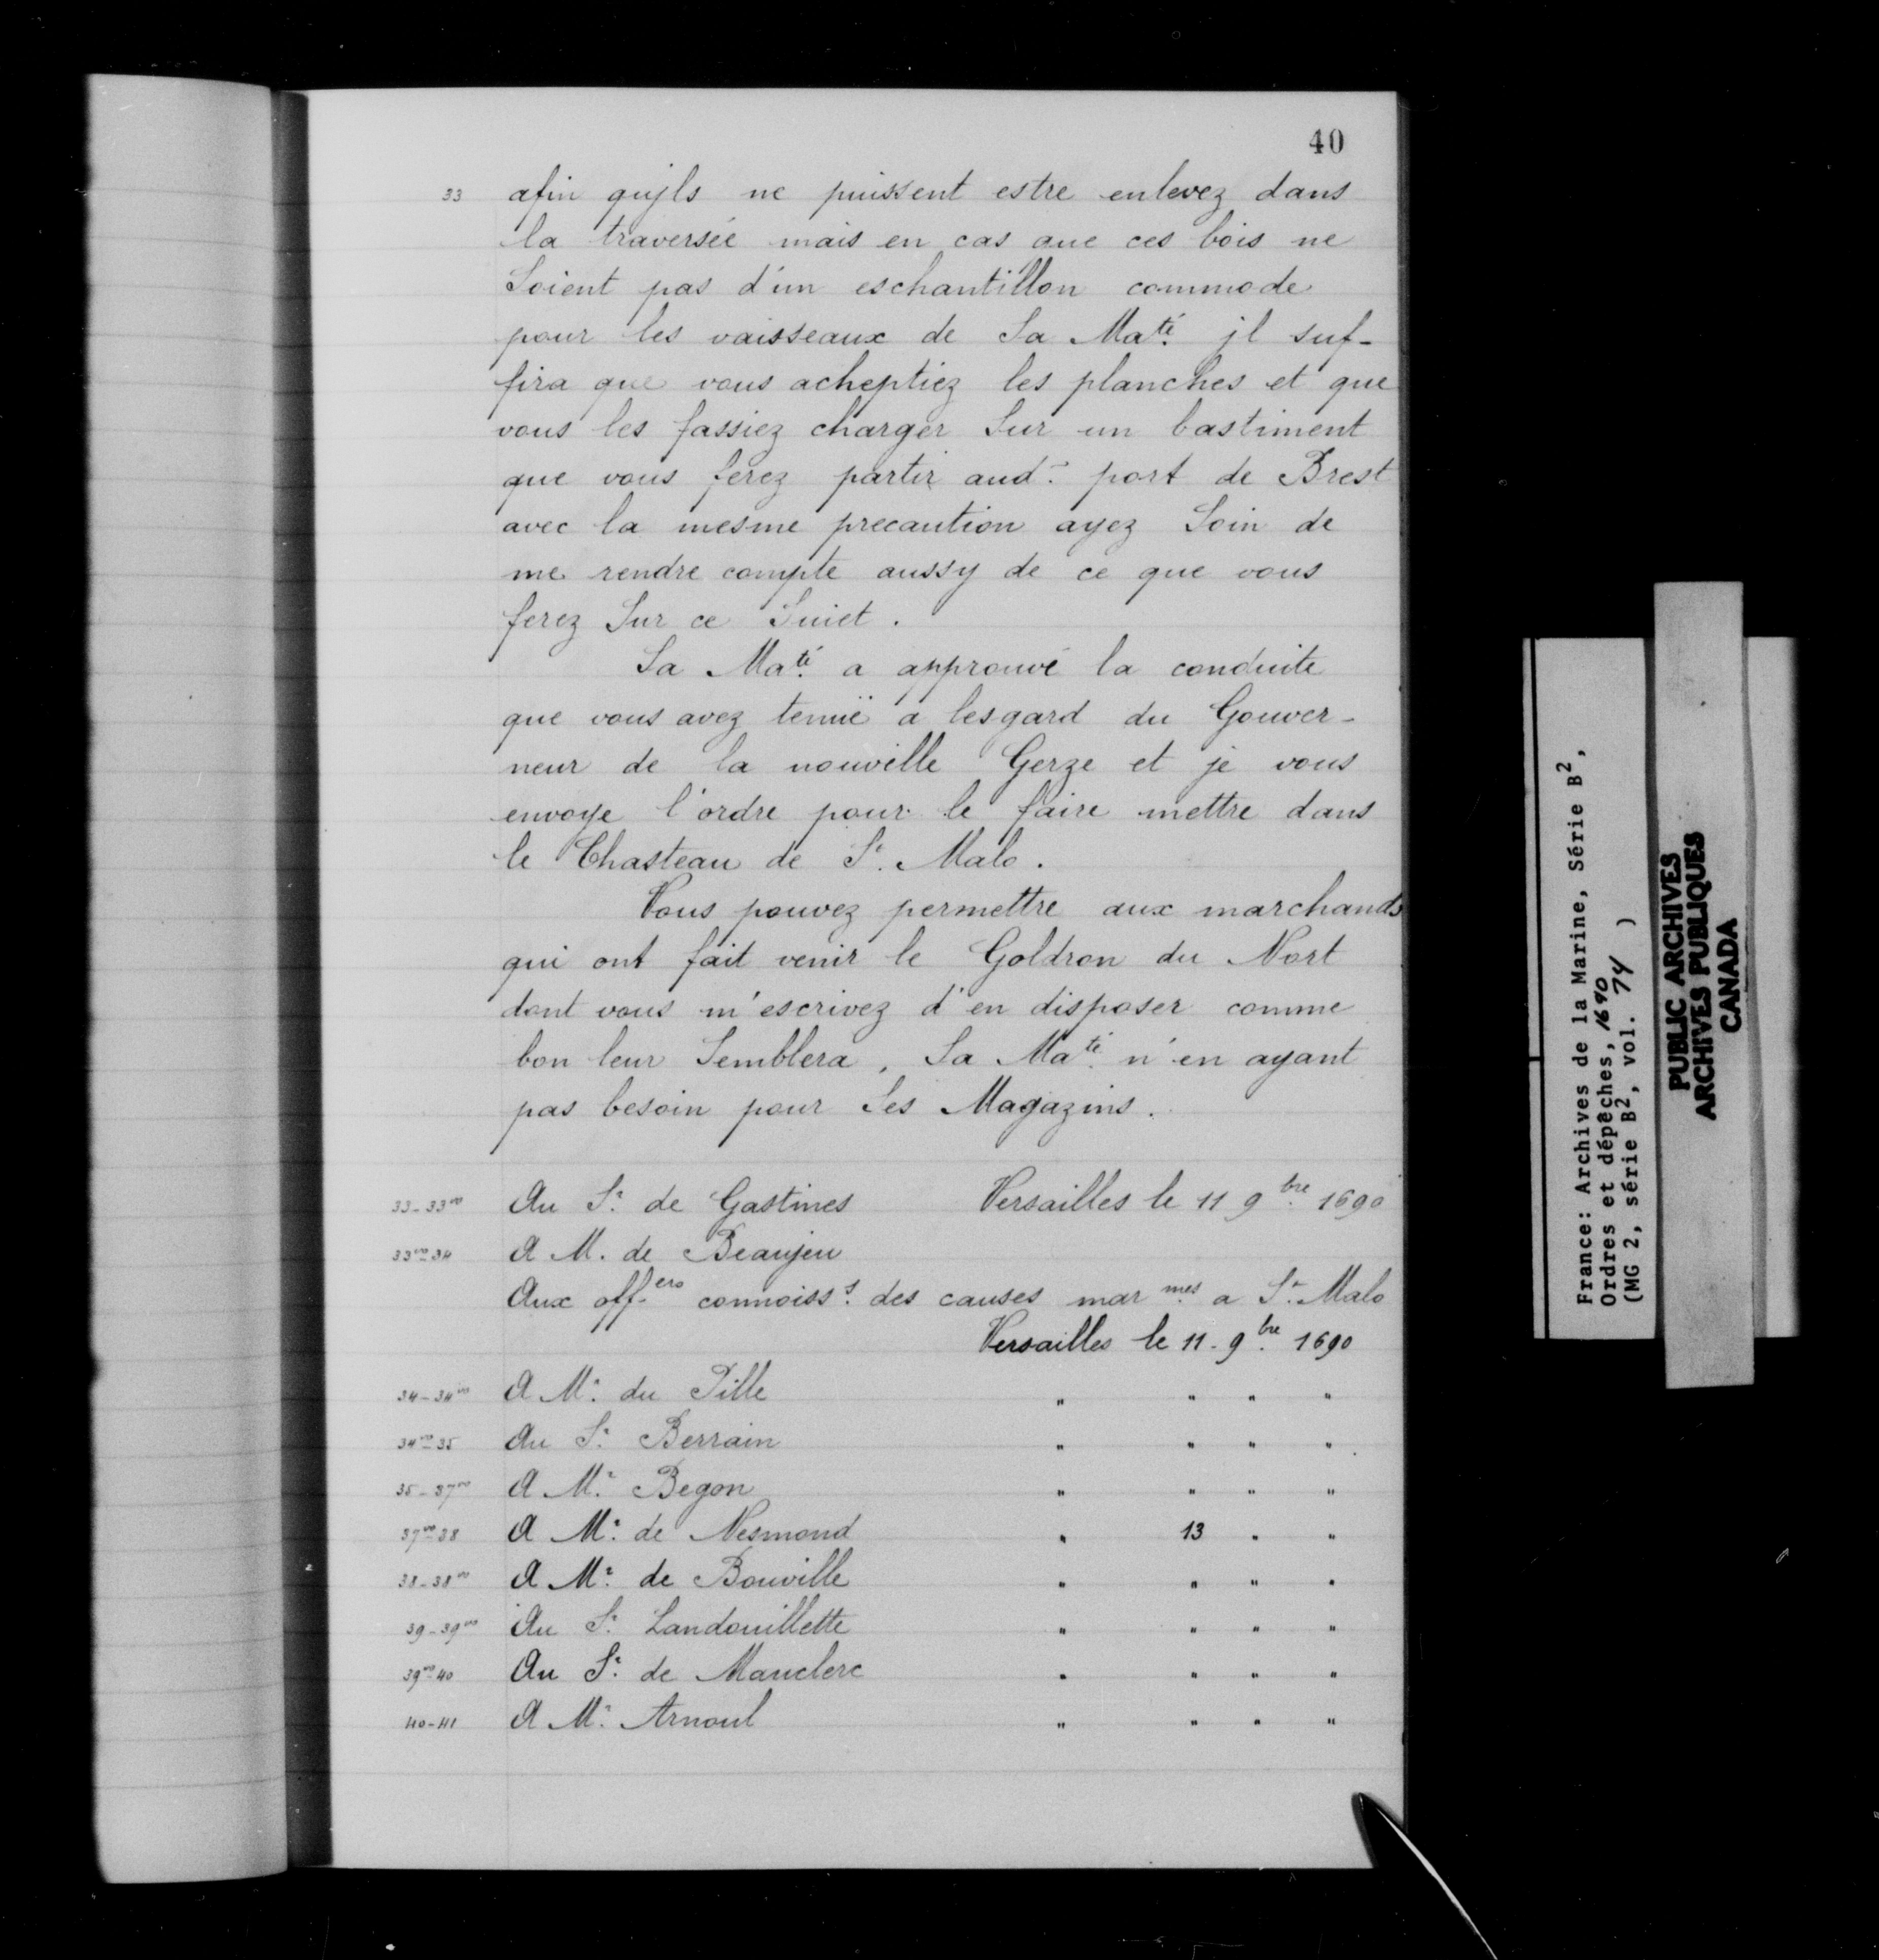 40
33 afin qujls ne puissent estre enlevez dans
la traversée mais en cas que ces bois ne
Soient pas d'un eschantillon commode
pour les vaisseaux de Sa Maté jl suf-
fira que vous acheptiez les planches et que
vous les fassiez charger Sur un bastiment
que vous ferez partir aud. port de Brest
avec la mesme precaution ayez Soin de
me rendre compte aussy de ce que vous
ferez Sur ce Suiet.
Sa Maté a approuvé la conduite
que vous avez tenuë a lesgard du Gouver-
neur de la nouvelle Gerze et je vous
envoye l'ordre pour le faire mettre dans
le Chasteau de St. Malo.
Vous pouvez permettre aux marchands
qui ont fait venir le Goldron du Nort
dont vous m'escrivez d'en disposer comme
bon leur Semblera, Sa Maté n'en ayant
pas besoin pour Ses Magazins.
33-33vo Au Sr. de Gastines Versailles le 11 9bre 1690
33vo-34 A M. de Beaujeu
Aux offers connoisss. des causes marmes a St. Malo
Versailles le 11-9bre 1690
34-34vo A Mr. du Pille " " " "
34vo-35 Au Sr. Berrain " " " "
35-37vo A Mr. Begon " " " "
37vo-38 A Mr. de Nesmond " 13 " "
38-38vo A Mr. de Bouville " " " "
39-39vo Au Sr. Landouillette " " " "
39vo-40 Au Sr. de Mauclerc " " " "
40-41 A Mr. Arnoul " " " "
France: Archives de la Marine, Série B2,
Ordres et dépêches, 1690
(MG 2, série B2, vol. 74 )
PUBLIC ARCHIVES
ARCHIVES PUBLIQUES
CANADA